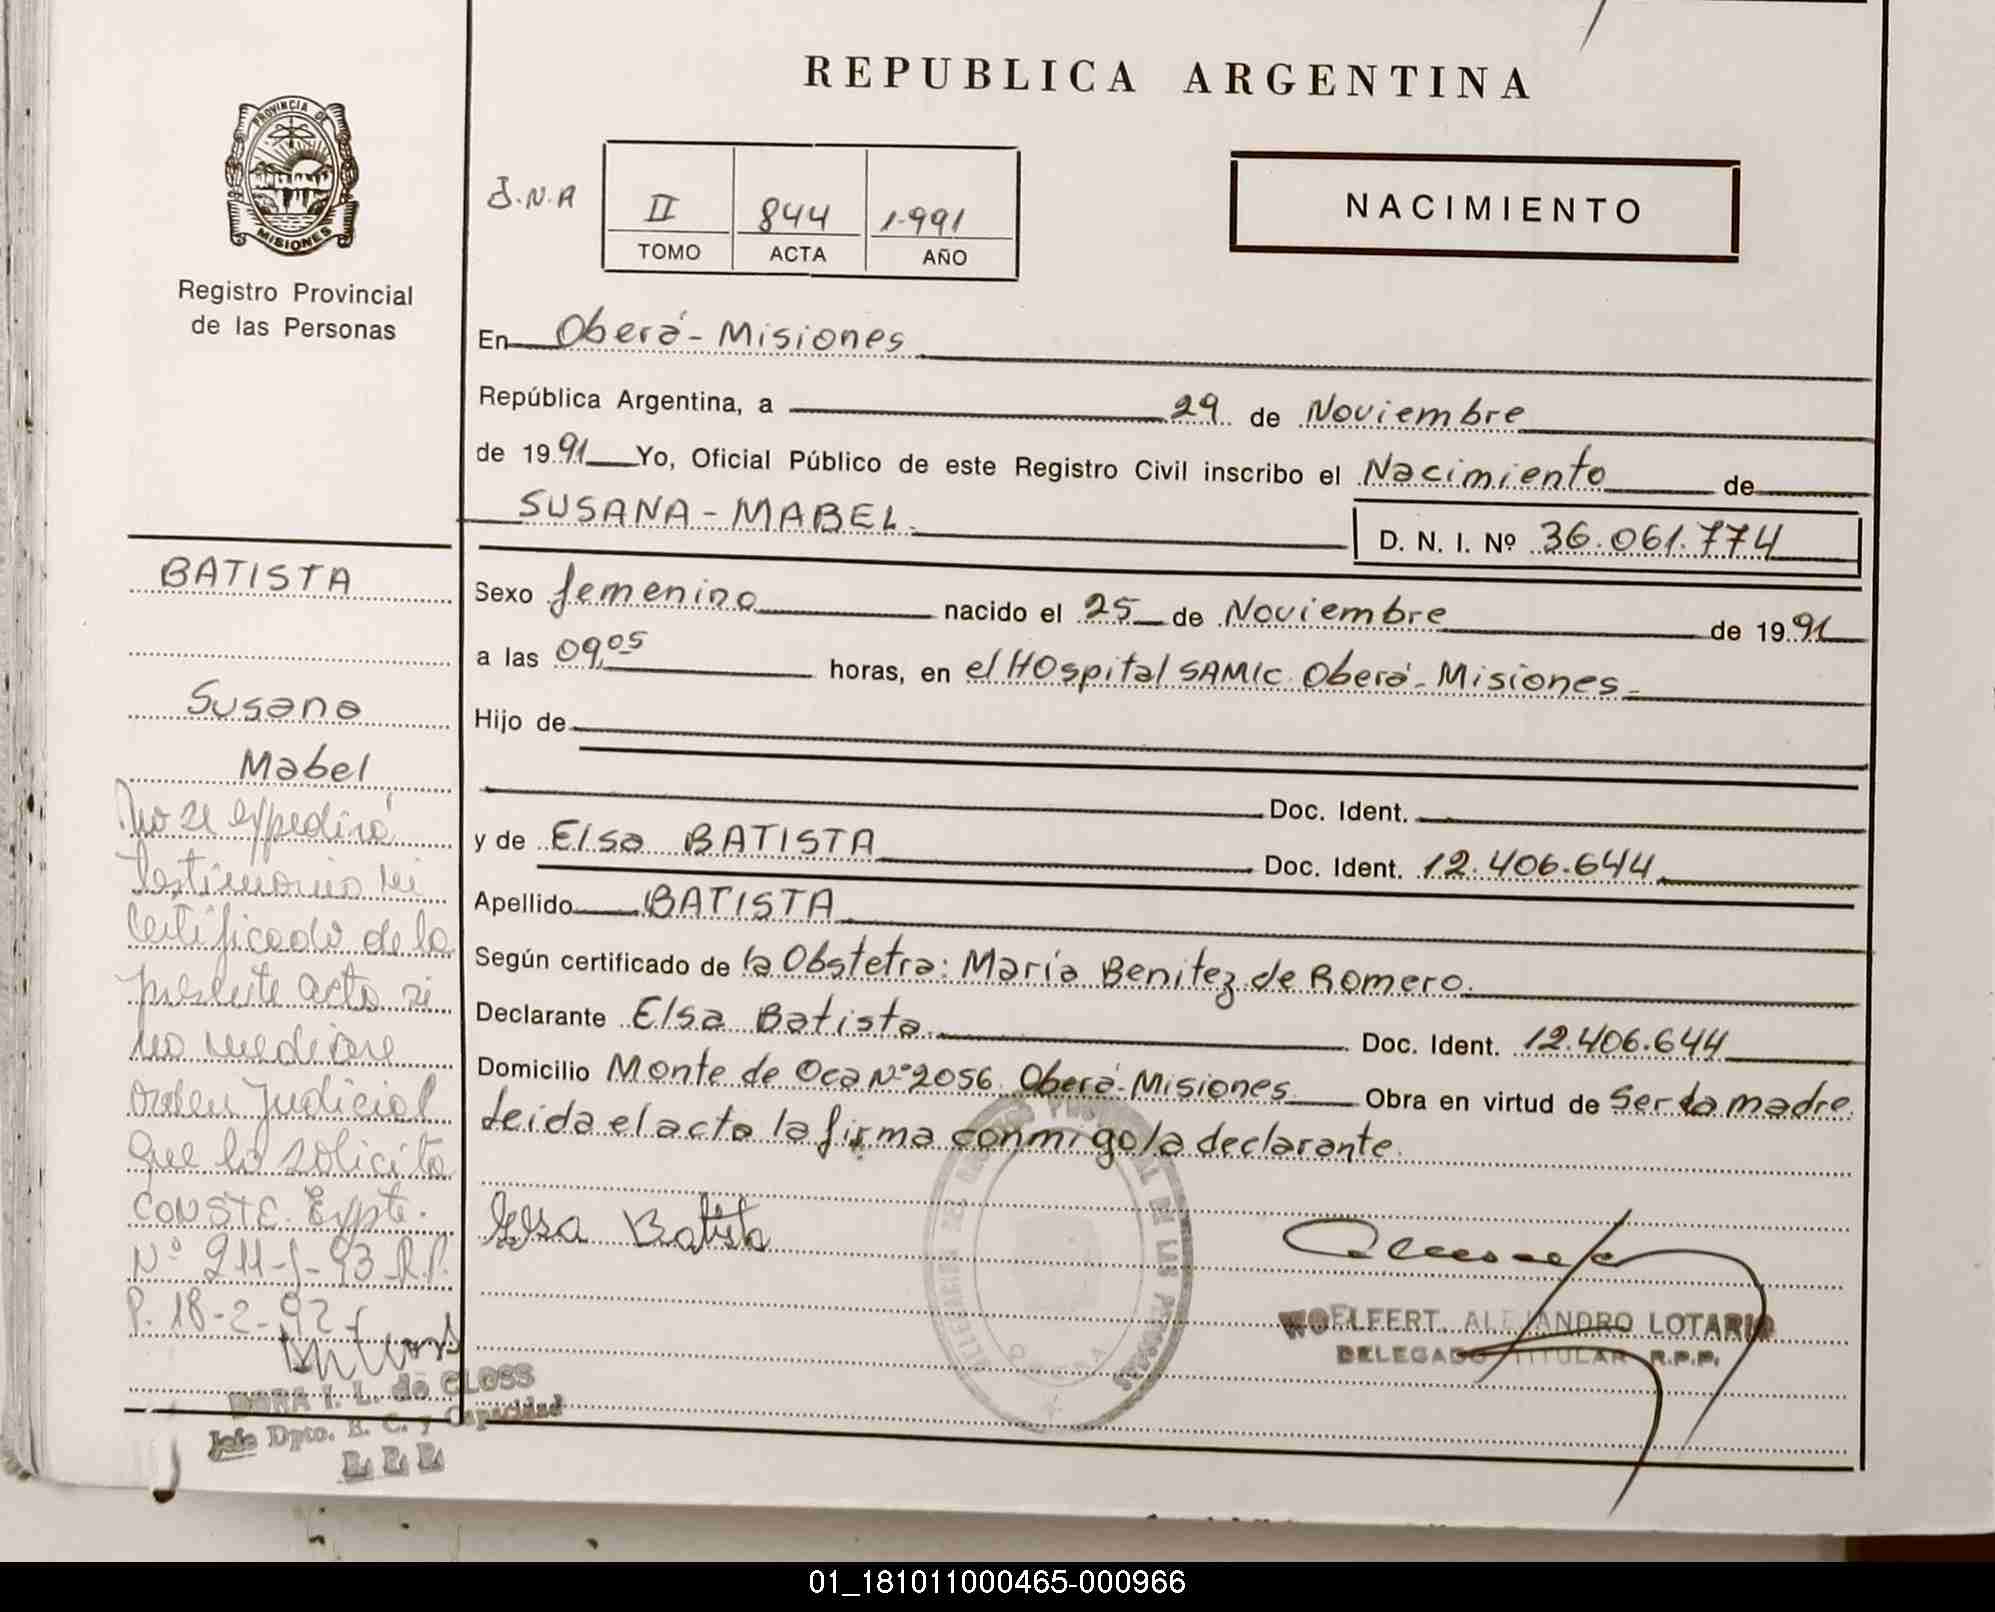 REPUBLICA ARGENTINA
PROVINCIA DE
MISIONES
Registro Provincial
de las Personas
J.N.A
II 844 1.991
TOMO ACTA AÑO
NACIMIENTO
En Oberá - Misiones
República Argentina, a 29 de Noviembre
de 1991 Yo, Oficial Público de este Registro Civil inscribo el Nacimiento de
SUSANA - MABEL.
D. N. I. Nº 36.061.774
Sexo femenino nacido el 25 de Noviembre de 1991
a las 09,05 horas, en el HOspital SAMIC Oberá - Misiones -
Hijo de
Doc. Ident.
y de Elsa BATISTA Doc. Ident. 12.406.644
Apellido BATISTA
Según certificado de la Obstetra: María Benitez de Romero.
Declarante Elsa Batista Doc. Ident. 12.406.644
Domicilio Monte de Oca Nº 2056 Oberá - Misiones Obra en virtud de Ser la madre.
Leida el acta la firma conmigo la declarante.
Elsa Batista
WOELFERT. ALEJANDRO LOTARIO
DELEGADO TITULAR R.P.P.
BATISTA
Susana
Mabel
No se expedirá
testimonio ni
certificado de la
presente acta si
no mediare
orden judicial
que lo solicite
CONSTE. Expte.
Nº 211-
P. 18-2-92
DORA I. L. de CLOSS
Jefe Dpto. E. C. y Capacidad
01_181011000465-000966